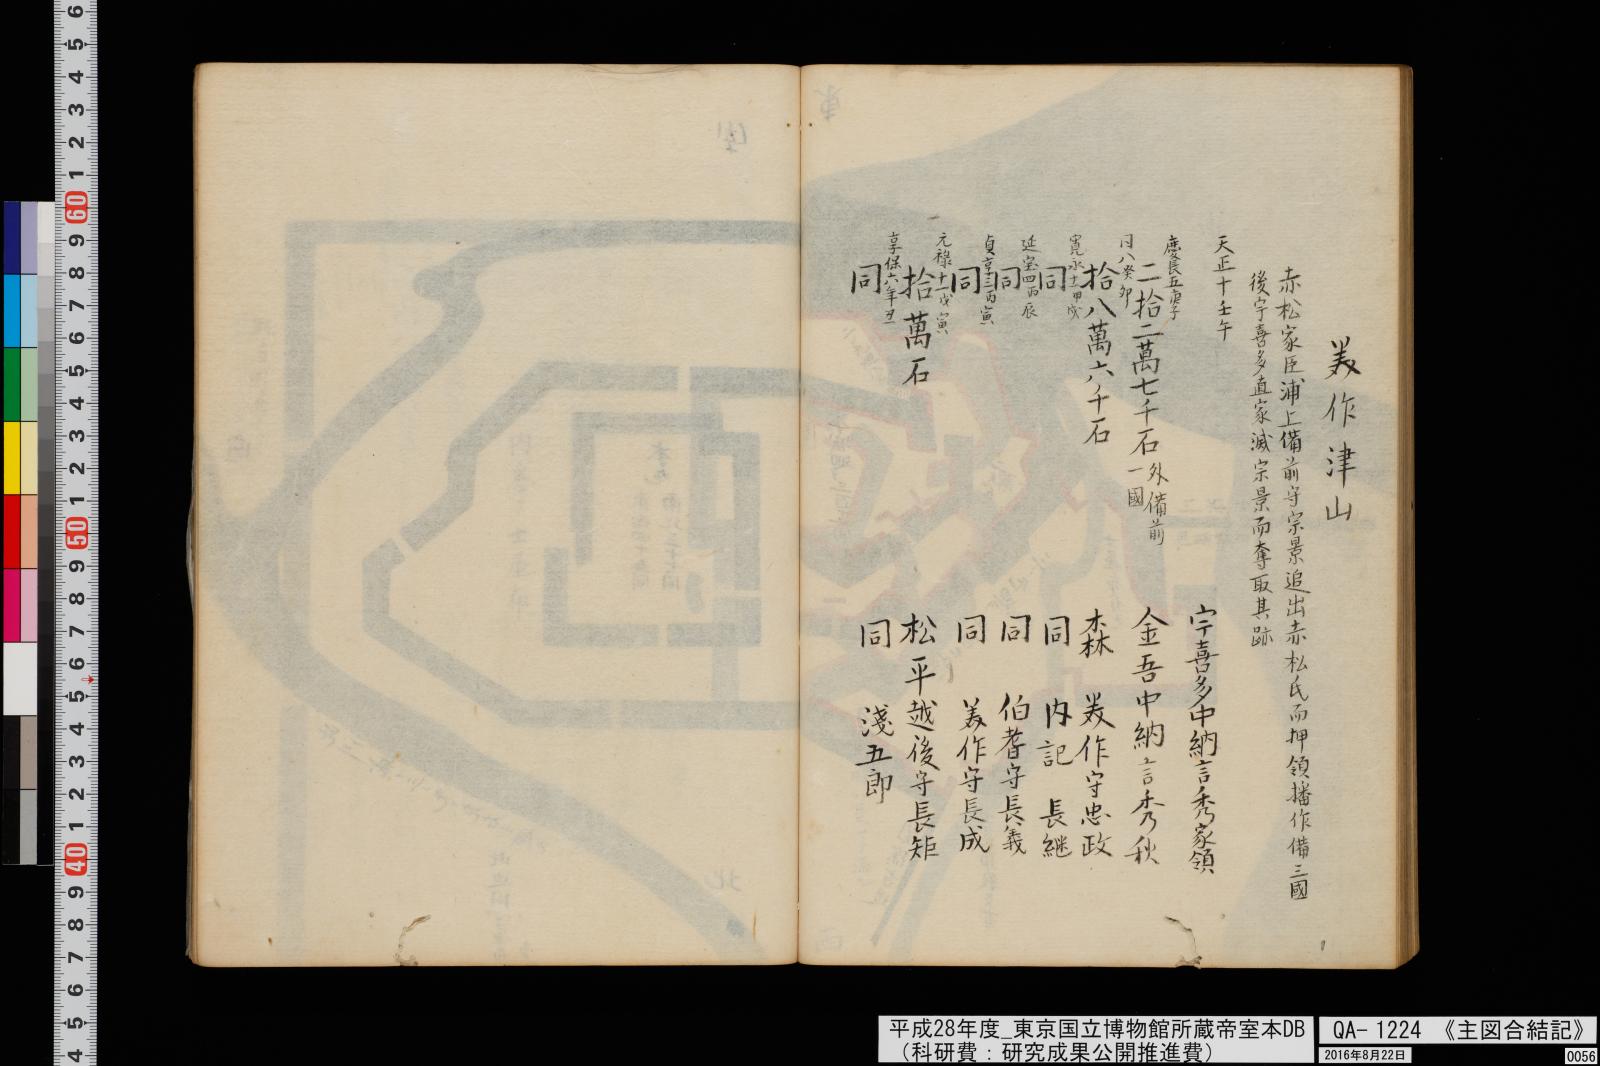 美作津山
赤松家臣浦上備前守宗景追出赤松氏而押領播作備三國
後宇喜多直家滅宗景而奪取其跡
天正十壬午
宇喜多中納言秀家領
慶長五庚子
二拾二萬七千石
外備前
一國
金吾中納言秀秋
同八癸卯
拾八萬六千石
森 美作守忠政
寛永十一甲戌
同
同 内記 長継
延宝四丙辰
同
同 伯耆守長義
貞享三丙寅
同
同 美作守長成
元禄十一戊寅
拾萬石
松平越後守長矩
享保六年丑
同
同 淺五郎
平成28年度_東京国立博物館所蔵帝室本DB
（科研費：研究成果公開推進費）
QA- 1224 《主図合結記》
2016年8月22日
0056